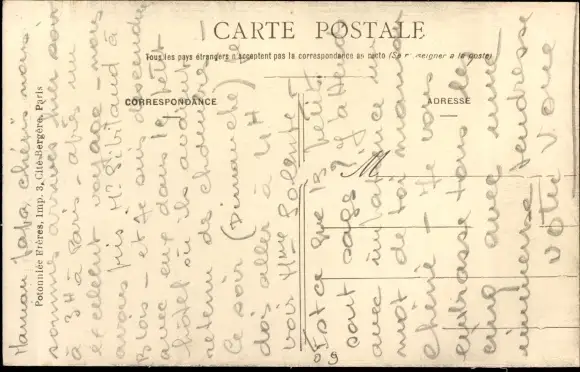 CARTE POSTALE
Tous les pays étrangers n'acceptent pas la correspondance au recto (Se renseigner à la poste)
CORRESPONDANCE
ADRESSE
M
Potonniée Frères, Imp. 3, Cité-Bergère, Paris
Maman Papa chéris nous
sommes arrivés hier soir
à 3H à Paris - après un
excellent voyage - nous
avons pris Mr
Blois - et je suis descendue
avec eux dans le petit
hôtel où ils avaient
retenu des chambres
Ce soir (Dimanche) je
dois aller à 4H
voir Mme
Est ce que les petits
sont sages ? J'attends
avec impatience un
mot de toi maman
chérie - Je vous
embrasse tous les
cinq avec une
immense tendresse
votre